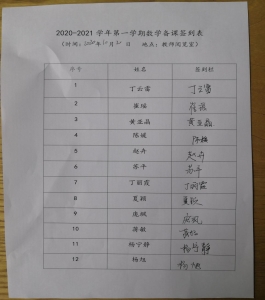 2020-2021 学年第一学期数学备课签到表
(时间: 2020年10月21日 地点: 教师阅览室)
序号 姓名 签到栏
1 丁云霞 丁云霞
2 崔瑶 崔瑶
3 黄亚磊 黄亚磊
4 陈媛 陈媛
5 赵卉 赵卉
6 苏平 苏平
7 丁丽霞 丁丽霞
8 夏颖
9 庞斌
10 蒋敏
11 杨宁静 杨宁静
12 杨旭 杨旭